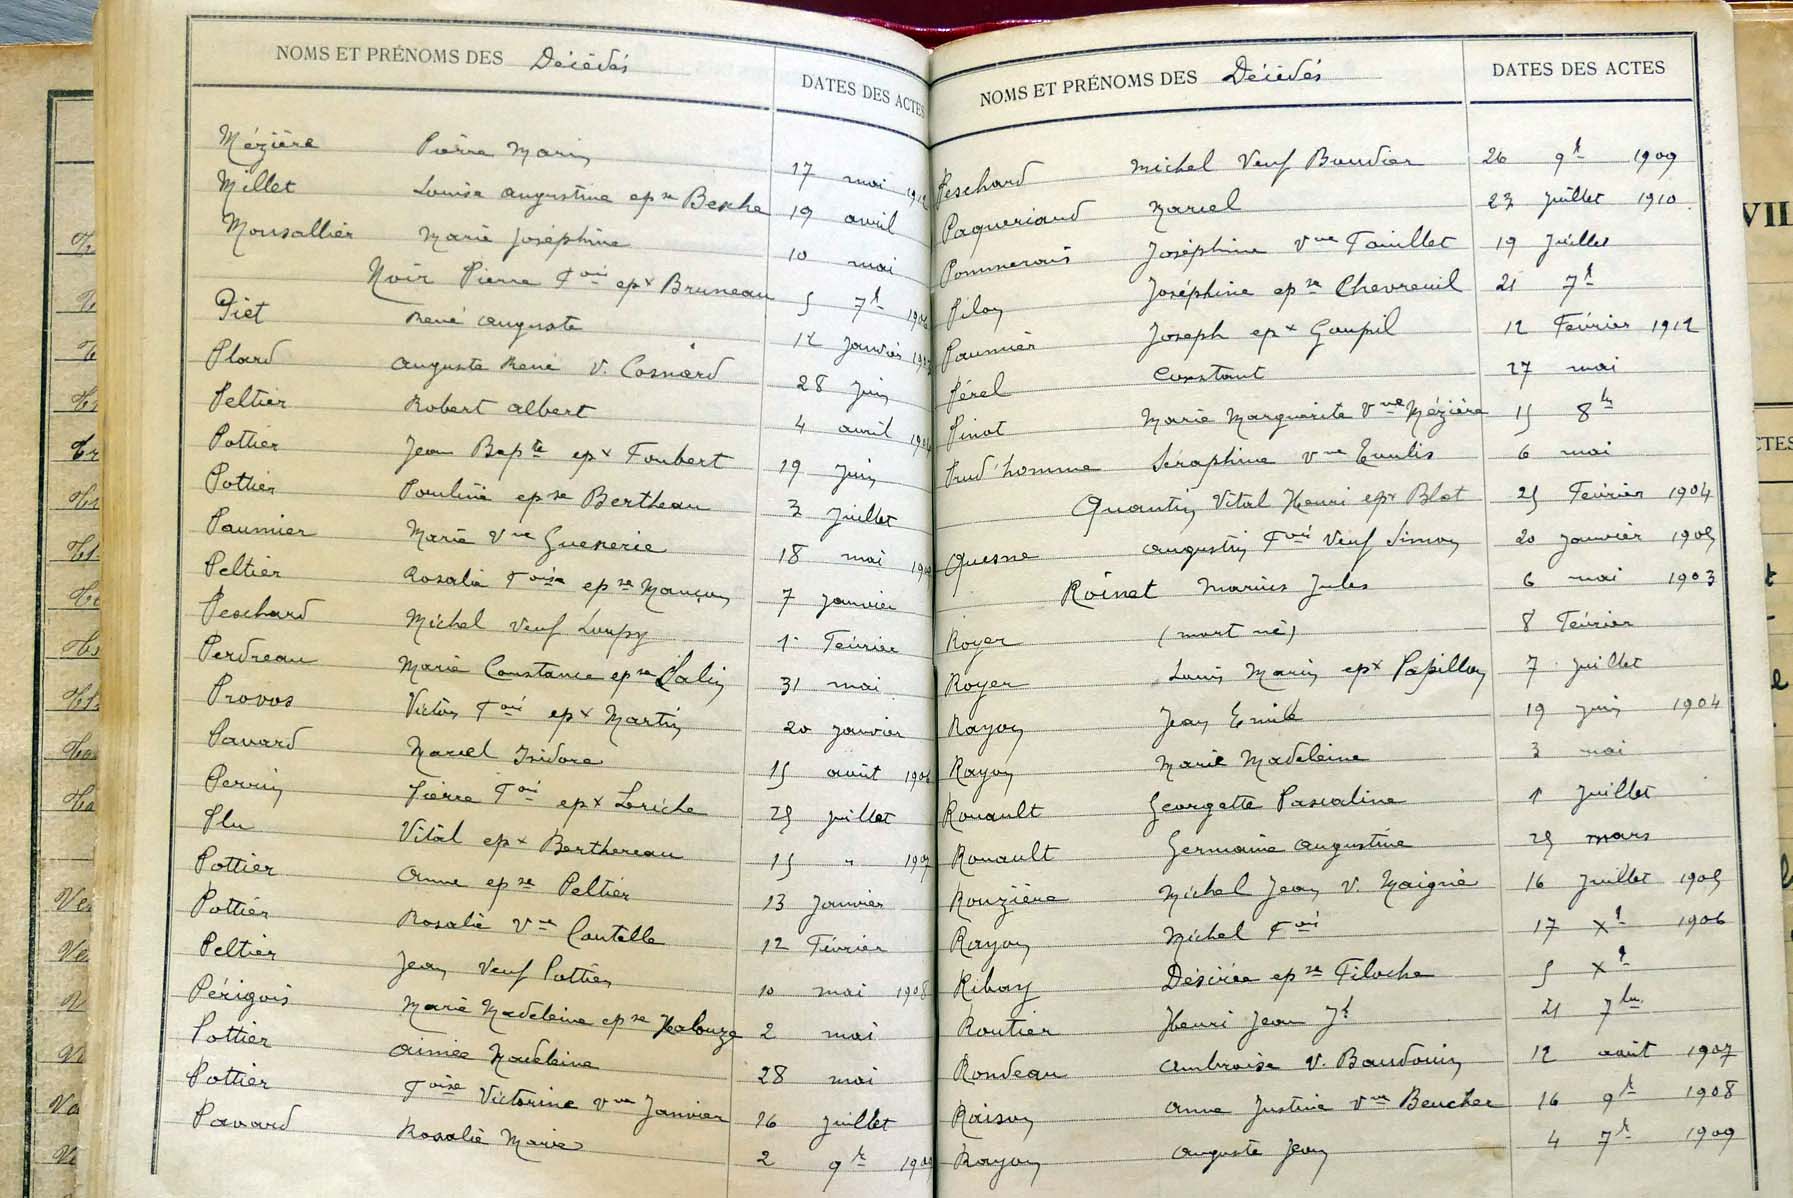 NOMS ET PRÉNOMS DES Décédés DATES DES ACTES
Mézière Pierre Marin 17 mai 1912
Millet Louise augustine epse Besche 19 avril
Monsallier Marie Joséphine 10 mai
Noir Pierre Foıs epx Bruneau 5 7r
Piet René auguste 12 janvier 1903
Plard auguste René v. Cosnard 28 juin
Peltier Robert albert 4 avril 1904
Pottier Jean Bapte epx Foubert 19 juin
Pottier Pauline epse Bertheau 3 juillet
Paumier Marie Vve Guenerie 18 mai
Peltier Rosalie Foise epse Mançon 7 janvier
Peschard Michel veuf Lurpy 1r Février
Perdreau Marie Constance epse Palin 31 mai
Provos Victor Fois epx Martin 20 janvier
Pavard Marcel Isidore 15 août 1906
Perrin Pierre Fois epx Loriche 25 juillet
Plu Vital epx Berthereau 15 " 1907
Pottier anne epse Peltier 13 janvier
Pottier Rosalie Vve Coutelle 12 Février
Peltier Jean veuf Pottier 10 mai 1908
Périgois Marie Madeleine epse 2 mai
Pottier aimée Madeleine 28 mai
Pottier Foise Victorine vve Janvier 16 juillet
Pavard Rosalie Marie 2 9r 1909
NOMS ET PRÉNOMS DES Décédés DATES DES ACTES
Peschard Michel Veuf Boudier 26 9r 1909
Paqueriaud Marcel 23 juillet 1910
Pommerais Joséphine vve Fouillet 19 juillet
Pilon Joséphine epse Chevreuil 21 7r
Paumier Joseph epx Goupil 12 Février 1912
Pérel Constant 27 mai
Pinot Marie Marguerite Vve Mézière 15 8bre
Prud'homme Séraphine vve Emilis 6 mai
Quantin Vital Henri epx Blot 25 Février 1904
Quesne augustin Fois Veuf Simon 20 janvier 1905
Roinet Marius Jules 6 mai 1903
Royer (mort né) 8 Février
Royer Louis Marin epx Papillon 7 juillet
Rayon Jean Emile 19 juin 1904
Rayon Marie Madeleine 3 mai
Rouault Georgette Pascaline 1 juillet
Rouault Germaine augustine 25 mars
Rouzière Michel Jean v. Maigné 16 juillet 1905
Rayon Michel Fois 17 Xr 1906
Ribay Désirée epse Filoche 5 Xr
Routier Henri Jean Jh 21 7bre
Rondeau ambroise v. Baudouin 12 août 1907
Raison anne Justine vve Beucher 16 9r 1908
Rayon auguste Jean 4 7r 1909
VII
CTES